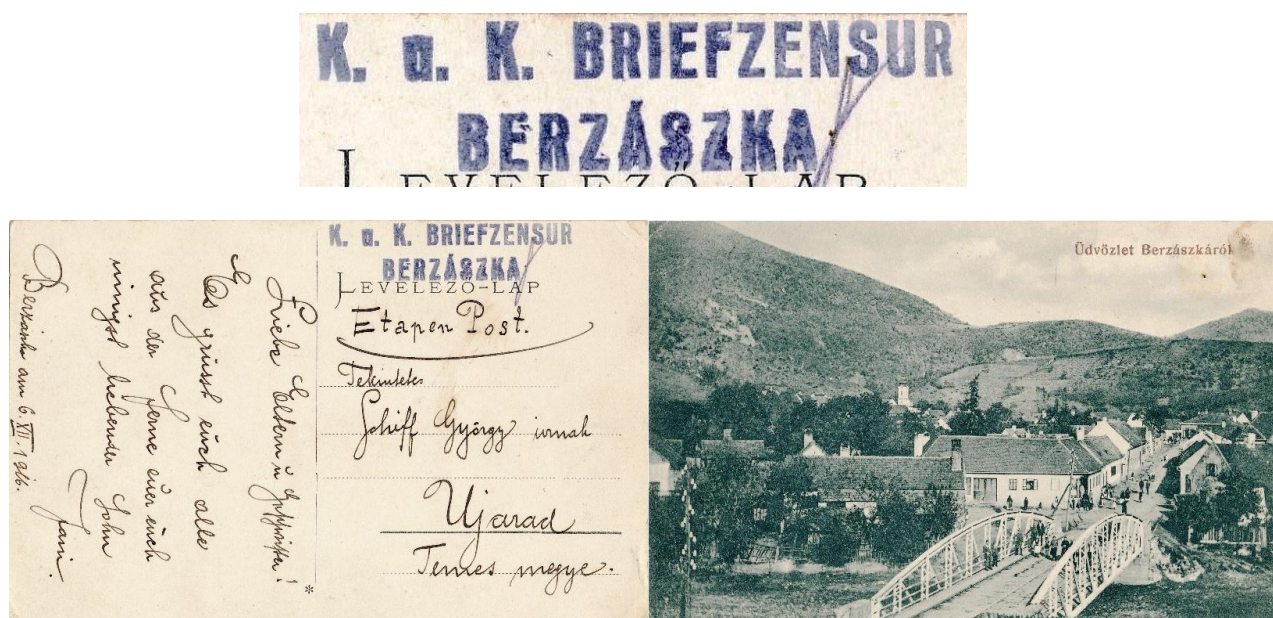 K. u. K. BRIEFZENSUR
BERZÁSZKA
LEVELEZŐ-LAP
K. u. K. BRIEFZENSUR
BERZÁSZKA
LEVELEZŐ-LAP
Etapen Post.
Tekintetes
Schiff György urnak
Ujarad
Temes megye.
Liebe Eltern u Geschwister!
Es grüsst euch alle
aus der Ferne euer euch
innigst liebender Sohn
Jani.
Berzaska am 6. XII. 1916.
*
Üdvözlet Berzászkáról